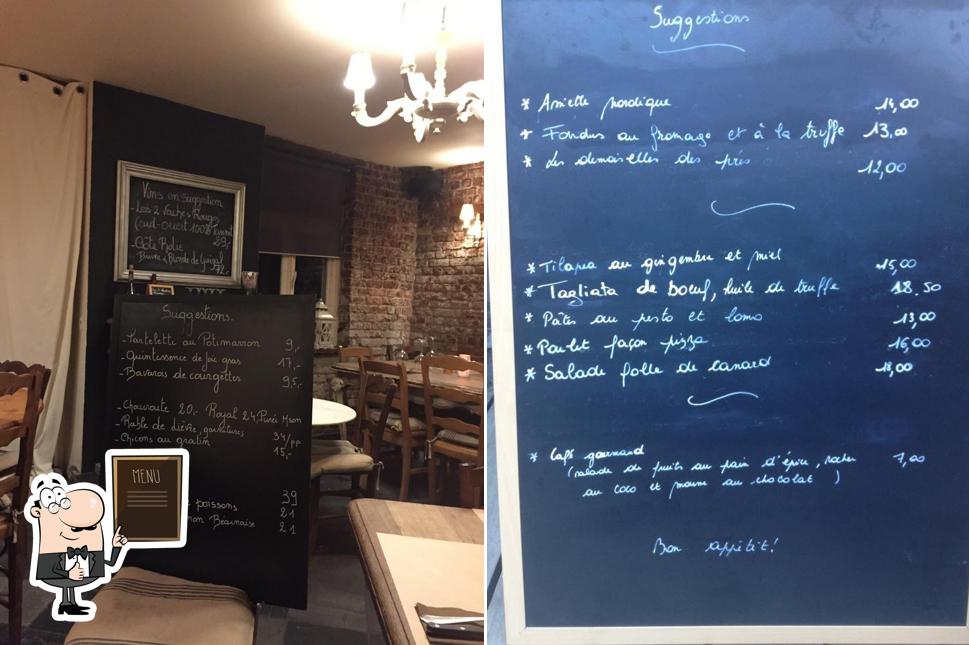 Vins en suggestion
- Les 2 Vaches Rouges
(sud-ouest 100% Tannat
29,-
- Côte Rotie
Brune & Blonde de Guigal
72,-
Suggestions.
- Tartelette au Potimarron 9,-
- Quintessence de foie gras 17,-
- Bavarois de courgettes 9,5,-
- Choucroute 20,- Royal 24, Purée Mson
- Rable de lièvre, garnitures 34/pp
- Chicons au gratin 15,-
39
poissons 21
Bearnaise 21
MENU
Suggestions
* Assiette nordique 14,00
* Fondus au fromage et à la truffe 13,00
* Les demoiselles des prés 12,00
* Tilapia au gingembre et miel 15,00
* Tagliata de bœuf, huile de truffe 18.50
* Pâtes au pesto et lomo 13,00
* Poulet façon pizza 16,00
* Salade folle de canard 18,00
* Café gourmand 7,00
(salade de fruits au pain d'épice, rocher
au coco et mousse au chocolat )
Bon appétit!